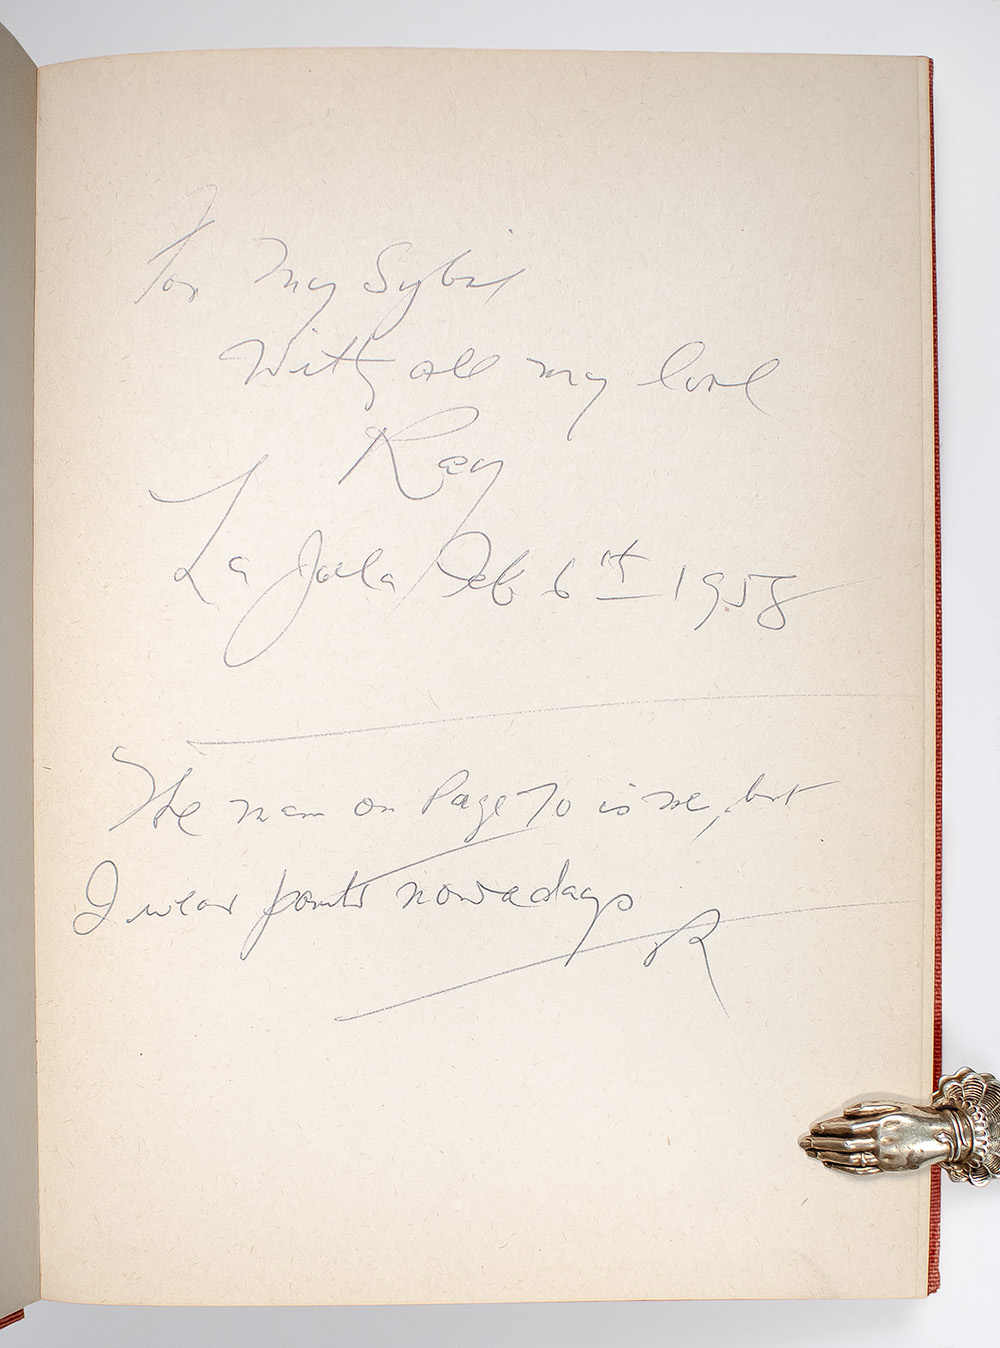 For My Sybil
With all my love
Ray
La Jolla Feb 6th 1958
The man on Page 70 is me, but
I wear pants nowadays
R